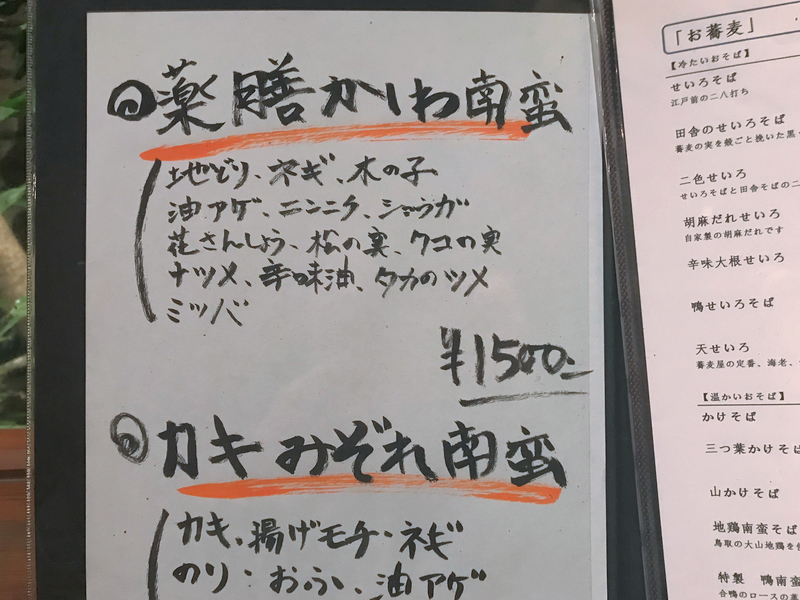 薬膳かしわ南蛮
地どり、ネギ、木の子
油アゲ、ニンニク、ショウガ
花さんしょう、松の実、クコの実
ナツメ、辛味油、タカのツメ
ミツバ
¥1500-
カキみぞれ南蛮
カキ、揚げモチ・ネギ
のり・おふ、油アゲ
「お蕎麦」
【冷たいおそば】
せいろそば
江戸前の二八打ち
田舎のせいろそば
蕎麦の実を殻ごと挽いた黒
二色せいろ
せいろそばと田舎そばの二
胡麻だれせいろ
自家製の胡麻だれです
辛味大根せいろ
鴨せいろそば
天せいろ
蕎麦屋の定番、海老、
【温かいおそば】
かけそば
三つ葉かけそば
山かけそば
地鶏南蛮そば
鳥取の大山地鶏を使
特製 鴨南蛮
合鴨のロースの蒸